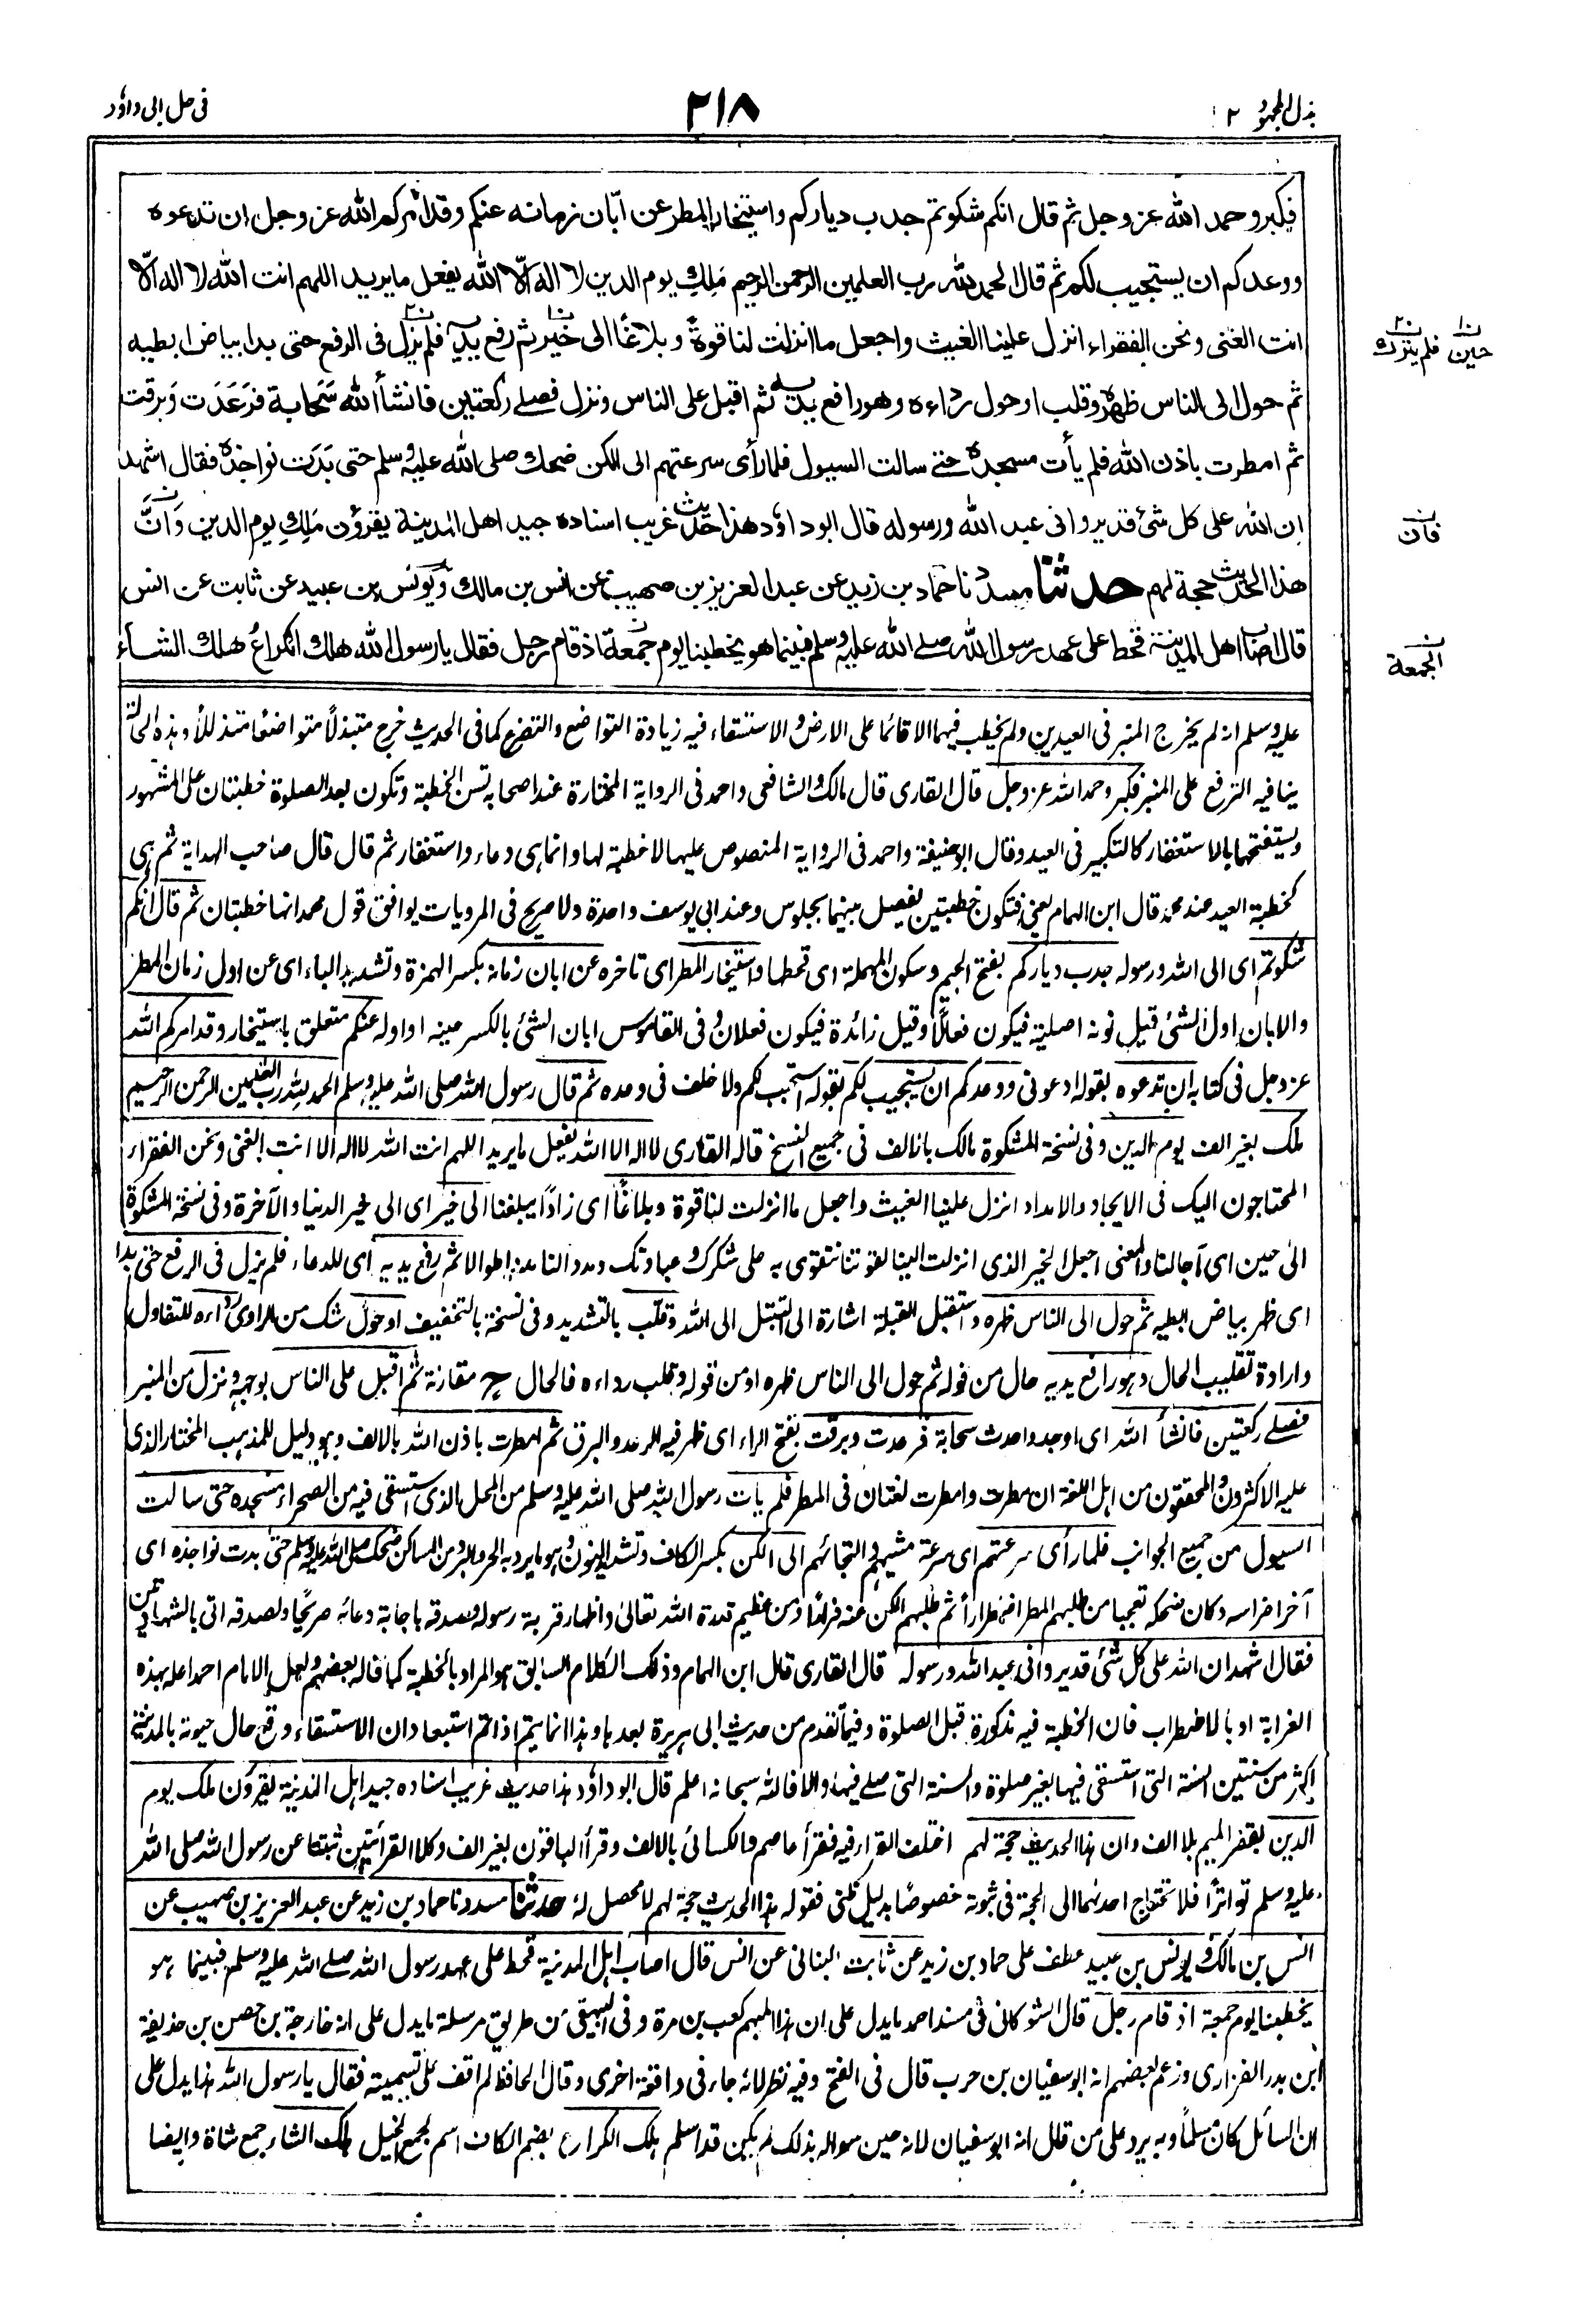 بذل المجهود ٢
٢١٨
فى حل ابى داؤد
فكبر وحمد الله عز وجل ثم قال انكم شكوتم جدب دياركم واستيخار المطر عن ابّان زمانه عنكم وقد امركم الله عز وجل ان تدعوه
ووعدكم ان يستجيب لكم ثم قال الحمد لله رب العلمين الرحمن الرحيم مَلِكِ يوم الدين لا اله الّا الله يفعل ما يريد اللهم انت الله لا اله الّا
انت الغنى ونحن الفقراء انزل علينا الغيث واجعل ما انزلت لنا قوة وبلاغًا الى خير ثم رفع يديه فلم يزل فى الرفع حتى بدا بياض ابطيه
حين فلم يترك
ثم حول الى الناس ظهره وقلب او حول رداءه وهو رافع يديه ثم اقبل على الناس ونزل فصلے ركعتين فانشأ الله سَحَابة فرَعَدَت وَبرقت
ثم امطرت باذن الله فلم يأت مسجده حتے سالت السيول فلما رأى سرعتهم الى الكن ضحك صلى الله عليه وسلم حتى بَدَت نواجذه فقال اشهد
ان الله على كل شئ قدير وانى عبد الله ورسوله قال ابو داؤد هذا حديث غريب اسناده جيد اهل المدينة يقرؤن مَلِكِ يوم الدين وَانَّ
فان
هذا الحديث حجة لهم حدثنا مسدد نا حماد بن زيد عن عبد العزيز بن صهيب عن انس بن مالك ويونس بن عبيد عن ثابت عن انس
قال اصاب اهل المدينة قحط على عهد رسول الله صلے الله عليه وسلم فبينما هو يخطبنا يوم جمعة اذ قام رجل فقال يا رسول الله هلك الكراعُ هلك الشاء
الجمعة
عليه وسلم انه لم يخرج المنبر فى العيدين ولم يخطب فيهما الا قائما على الارض والاستسقاء فيه زيادة التواضع والتضرع كما فى الحديث خرج متبذلًا متواضعًا متذللًا وهذه الحالة
ينافيه الترفع على المنبر فكبر وحمد الله عز وجل قال القارى قال مالك والشافعى واحمد فى الرواية المختارة عند اصحابه تسن الخطبة وتكون بعد الصلوة خطبتان على المشهور
ويستفتحها بالاستغفار كالتكبير فى العيد وقال ابو حنيفة واحمد فى الرواية المنصوص عليها لا خطبة لها وانما هى دعاء واستغفار ثم قال قال صاحب الهداية ثم هى
كخطبة العيد عند محمد قال ابن الهمام يعنى فتكون خطبتين يفصل بينهما بجلوس وعند ابى يوسف واحدة ولا صريح فى المرويات يوافق قول محمد انها خطبتان ثم قال انكم
شكوتم اى الى الله ورسوله جدب دياركم بفتح الجيم وسكون المهملة اى قحطها واستيخار المطر اى تاخره عن ابان زمانه بكسر الهمزة وتشديد الباء اى عن اول زمان المطر
والابان اول الشئ قيل نونه اصلية فيكون فعالًا وقيل زائدة فيكون فعلان وفى القاموس ابان الشئ بالكسر حينه او اوله عنكم متعلق باستيخار وقد امركم الله
عز وجل فى كتابه ان تدعوه بقوله ادعونى ووعدكم ان يستجيب لكم بقوله استجب لكم ولا خلف فى وعده ثم قال رسول الله صلى الله عليه وسلم الحمد لله رب العلمين الرحمن الرحيم
ملك بغير الف يوم الدين وفى نسخة المشكوة مالك بالالف فى جميع النسخ قاله القارى لا اله الا الله يفعل ما يريد اللهم انت الله لا اله الا انت الغنى ونحن الفقراء
المحتاجون اليك فى الايجاد والامداد انزل علينا الغيث واجعل ما انزلت لنا قوة وبلاغًا اى زادًا يبلغنا الى خير اى الى خير الدنيا والآخرة وفى نسخة المشكوة
الى حين اى آجالنا والمعنى اجعل الخير الذى انزلت الينا لقوتنا نتقوى به على شكرك وعبادتك ومدد النامدًا طوالا ثم رفع يديه اى للدعاء فلم يزل فى الرفع حتى بدا
اى ظهر بياض ابطيه ثم حول الى الناس ظهره واستقبل القبلة اشارة الى التبتل الى الله وقلب بالتشديد وفى نسخة بالتخفيف او حول شك من الراوى رداءه للتفاول
وارادة تقليب الحال وهو رافع يديه حال من قوله ثم حول الى الناس ظهره او من قوله وقلب رداءه فالحال ح مقارنة ثم اقبل على الناس بوجهه ونزل من المنبر
فصلے ركعتين فانشأ الله اى اوجد واحدث سحابة فرعدت وبرقت بفتح الراء اى ظهر فيه الرعد والبرق ثم امطرت باذن الله بالالف وهو دليل للمذهب المختار الذى
عليه الاكثرون والمحققون من اهل اللغة ان مطرت وامطرت لغتان فى المطر فلم يات رسول الله صلى الله عليه وسلم من المحل الذى استسقى فيه من الصحراء مسجده حتى سالت
السيول من جميع الجوانب فلما رأى سرعتهم اى سرعة مشيهم والتجائهم الى الكن بكسر الكاف وتشديد النون وهو ما يرد به الحر والبرد من المساكن ضحك صلى الله عليه وسلم حتى بدت نواجذه اى
آخر اضراسه وكان ضحكه تعجبا من طلبهم المطر اضطرارًا ثم طلبهم الكن عنه فرارًا ومن عظيم قدرة الله تعالى واظهار قربة رسوله وصدقه باجابة دعائه صريحًا ولصدقه اتى بالشهادتين
فقال اشهد ان الله على كل شئ قدير وانى عبد الله ورسوله قال القارى قال ابن الهمام وذلك الكلام السابق هو المراد بالخطبة كما قاله بعضهم ولعل الامام احمد اعله بهذه
الغرابة او بالاضطراب فان الخطبة فيه مذكورة قبل الصلوة وفيما تقدم من حديث ابى هريرة بعدها وهذا انما يتم اذا تم استبعاد ان الاستسقاء وقع حال حيوته بالمدينة
اكثر من سنتين السنة التى استسقى فيها بغير صلوة والسنة التى صلے فيها والا فالله سبحانه اعلم قال ابو داؤد هذا حديث غريب اسناده جيد اهل المدينة يقرؤن ملك يوم
الدين بقصر الميم بلا الف وان هذا الحديث حجة لهم اختلف القراء فيه فقرأ عاصم والكسائى بالالف وقرأ الباقون بغير الف وكلا القرأتين ثبتتا عن رسول الله صلى الله
عليه وسلم تواترًا فلا تحتاج احدهما الى الحجة فى ثبوته خصوصًا بدليل ظنى فقوله هذا الحديث حجة لهم لا محصل له حدثنا مسدد نا حماد بن زيد عن عبد العزيز بن صهيب عن
انس بن مالك ويونس بن عبيد عطف على حماد بن زيد عن ثابت البنانى عن انس قال اصاب اهل المدينة قحط على عهد رسول الله صلے الله عليه وسلم فبينما هو
يخطبنا يوم جمعة اذ قام رجل قال الشوكانى فى مسند احمد ما يدل على ان هذا المبهم كعب بن مرة وفى البيهقى من طريق مرسلة ما يدل على انه خارجة بن حصن بن حذيفة
ابن بدر الفزارى وزعم بعضهم انه ابو سفيان بن حرب قال فى الفتح وفيه نظر لانه جاء فى واقعة اخرى وقال الحافظ لم اقف على تسميته فقال يا رسول الله هذا يدل على
ان السائل كان مسلمًا وبه يرد على من قال انه ابو سفيان لانه حين سواله بذلك لم يكن قد اسلم هلك الكراع بضم الكاف اسم لجمع الخيل هلك الشاء جمع شاة وايضا